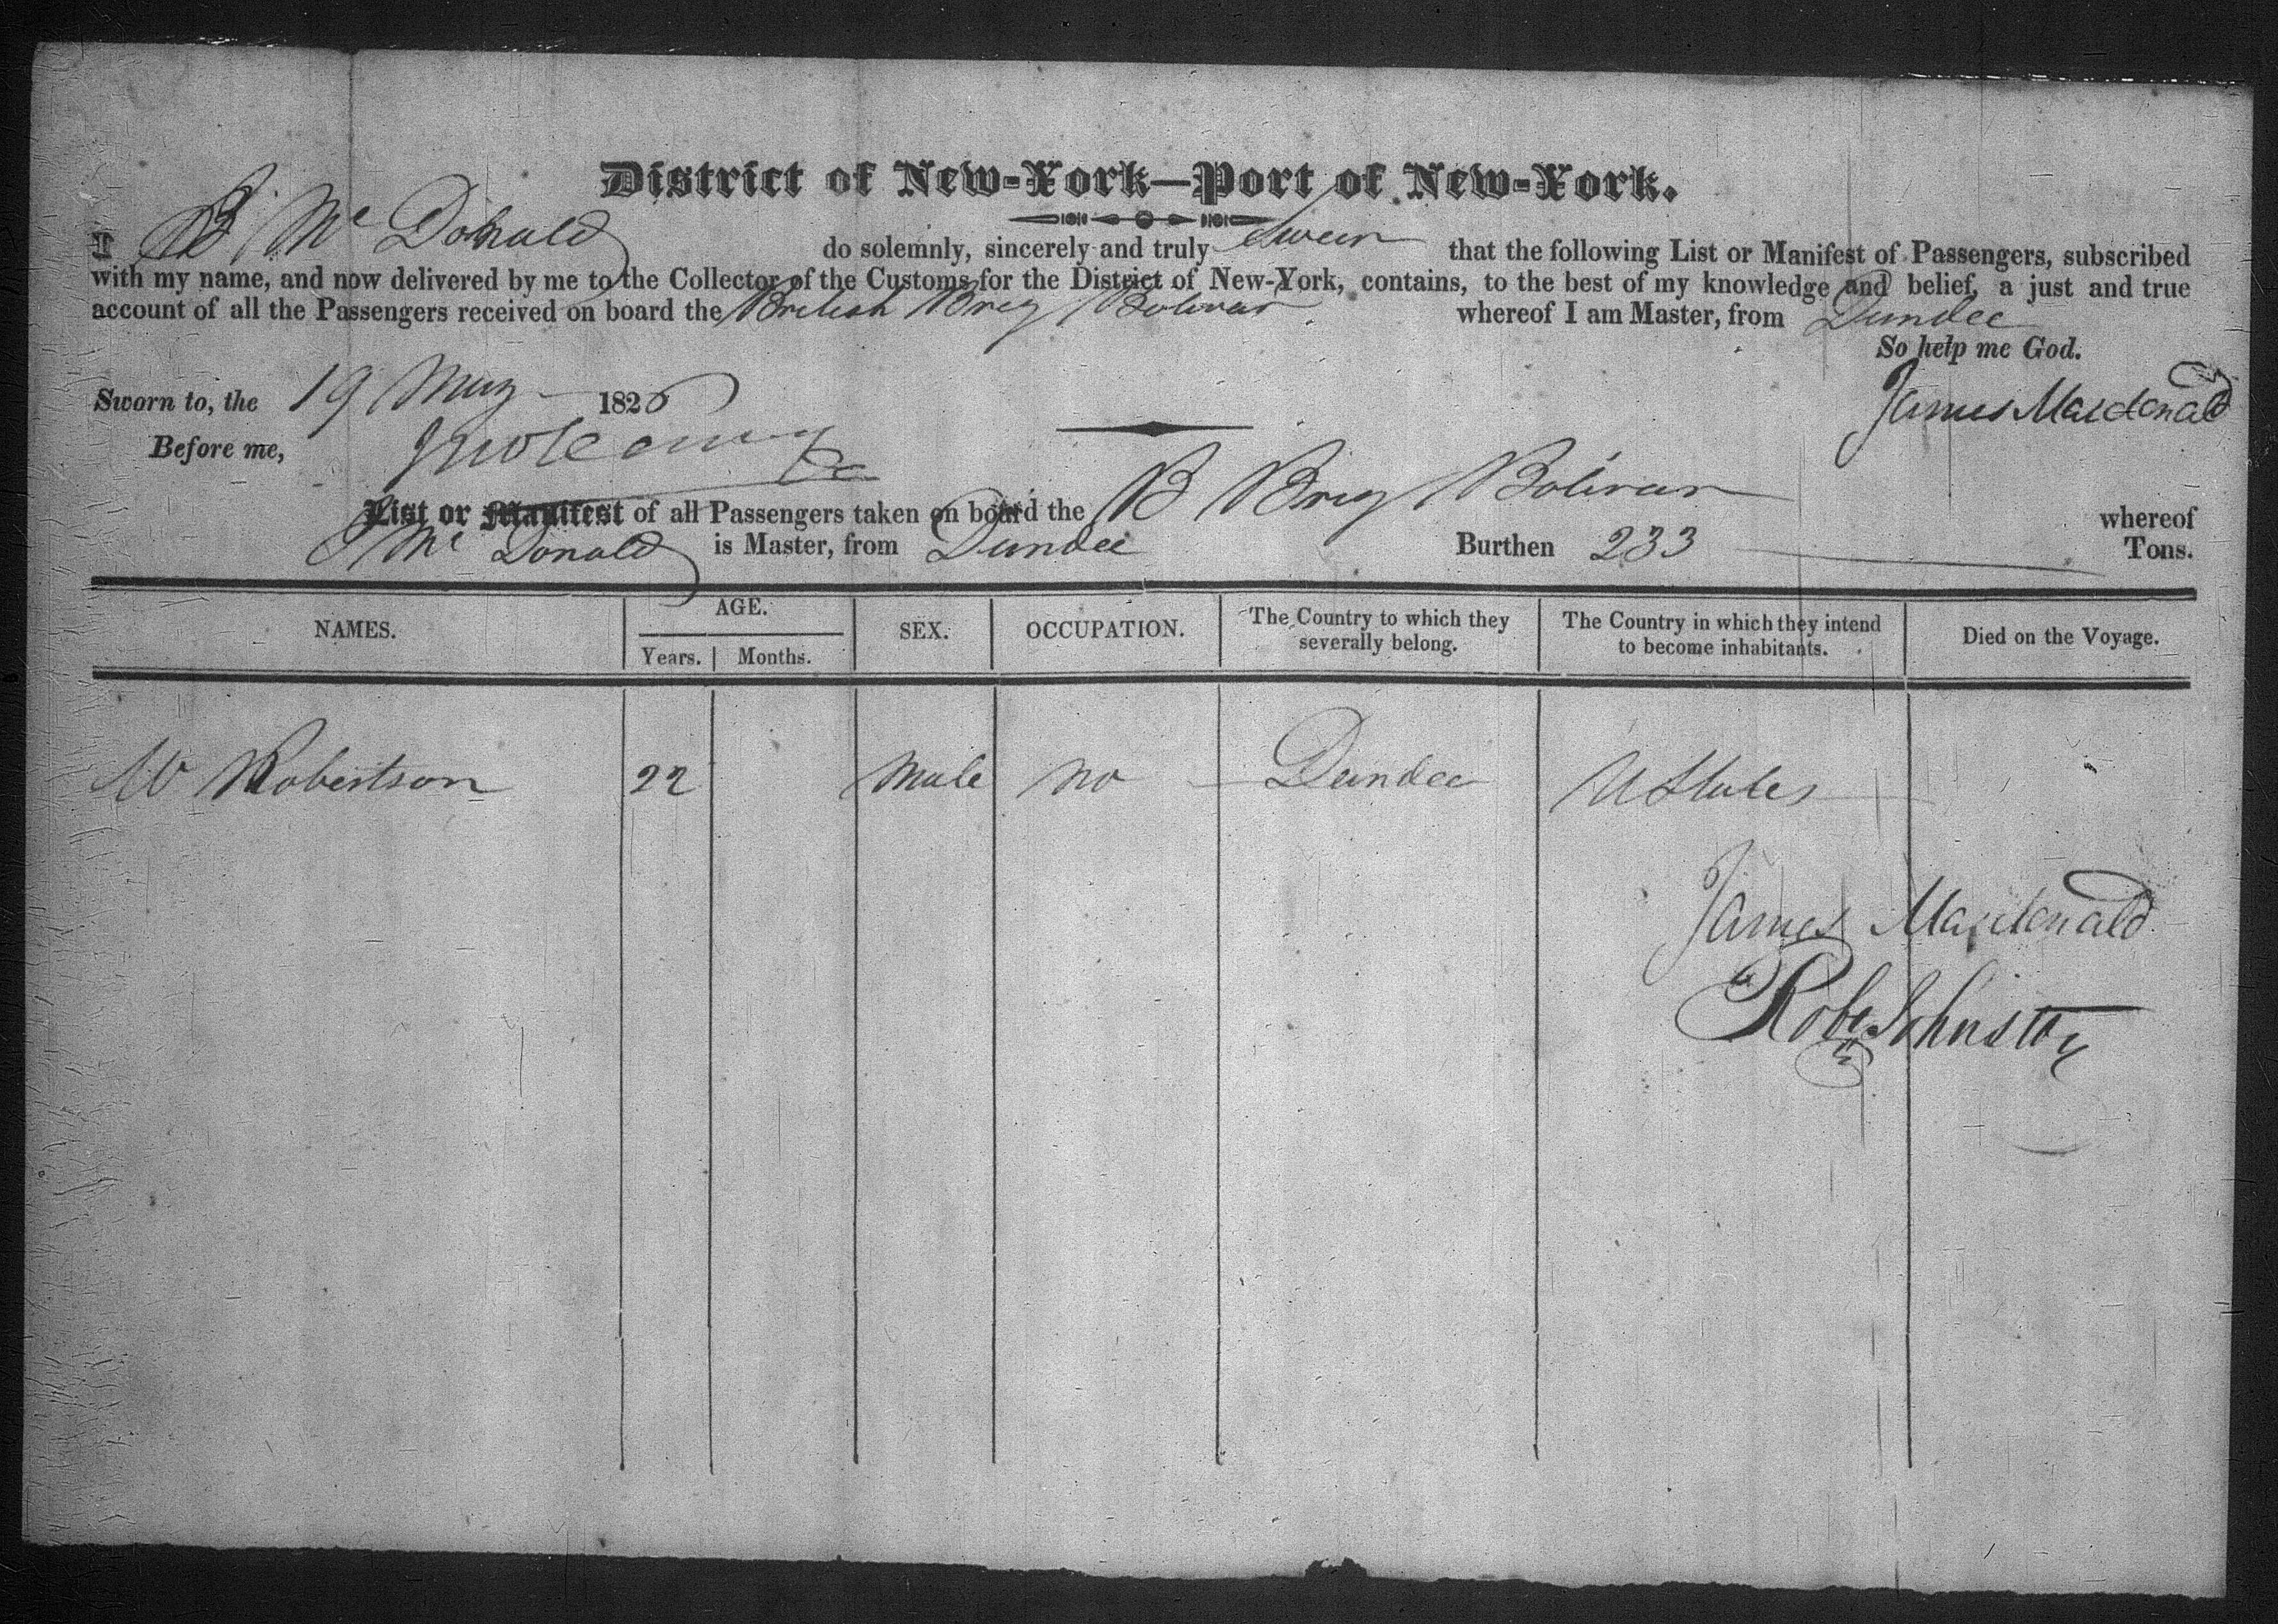 District of New-York—Port of New-York.
I J Mc Donald do solemnly, sincerely and truly Swear that the following List or Manifest of Passengers, subscribed
with my name, and now delivered by me to the Collector of the Customs for the District of New-York, contains, to the best of my knowledge and belief, a just and true
account of all the Passengers received on board the British Brig Bolivar whereof I am Master, from Dundee
So help me God.
Sworn to, the 19 May 1826
James Macdonald
Before me,
List or Manifest of all Passengers taken on board the B Brig Bolivar whereof
J Mc Donald is Master, from Dundee Burthen 233 Tons.
NAMES. AGE. Years. Months. SEX. OCCUPATION. The Country to which they severally belong. The Country in which they intend to become inhabitants. Died on the Voyage.
W Robertson 22 Male no Dundee U States
James Macdonald
Robt Johnston